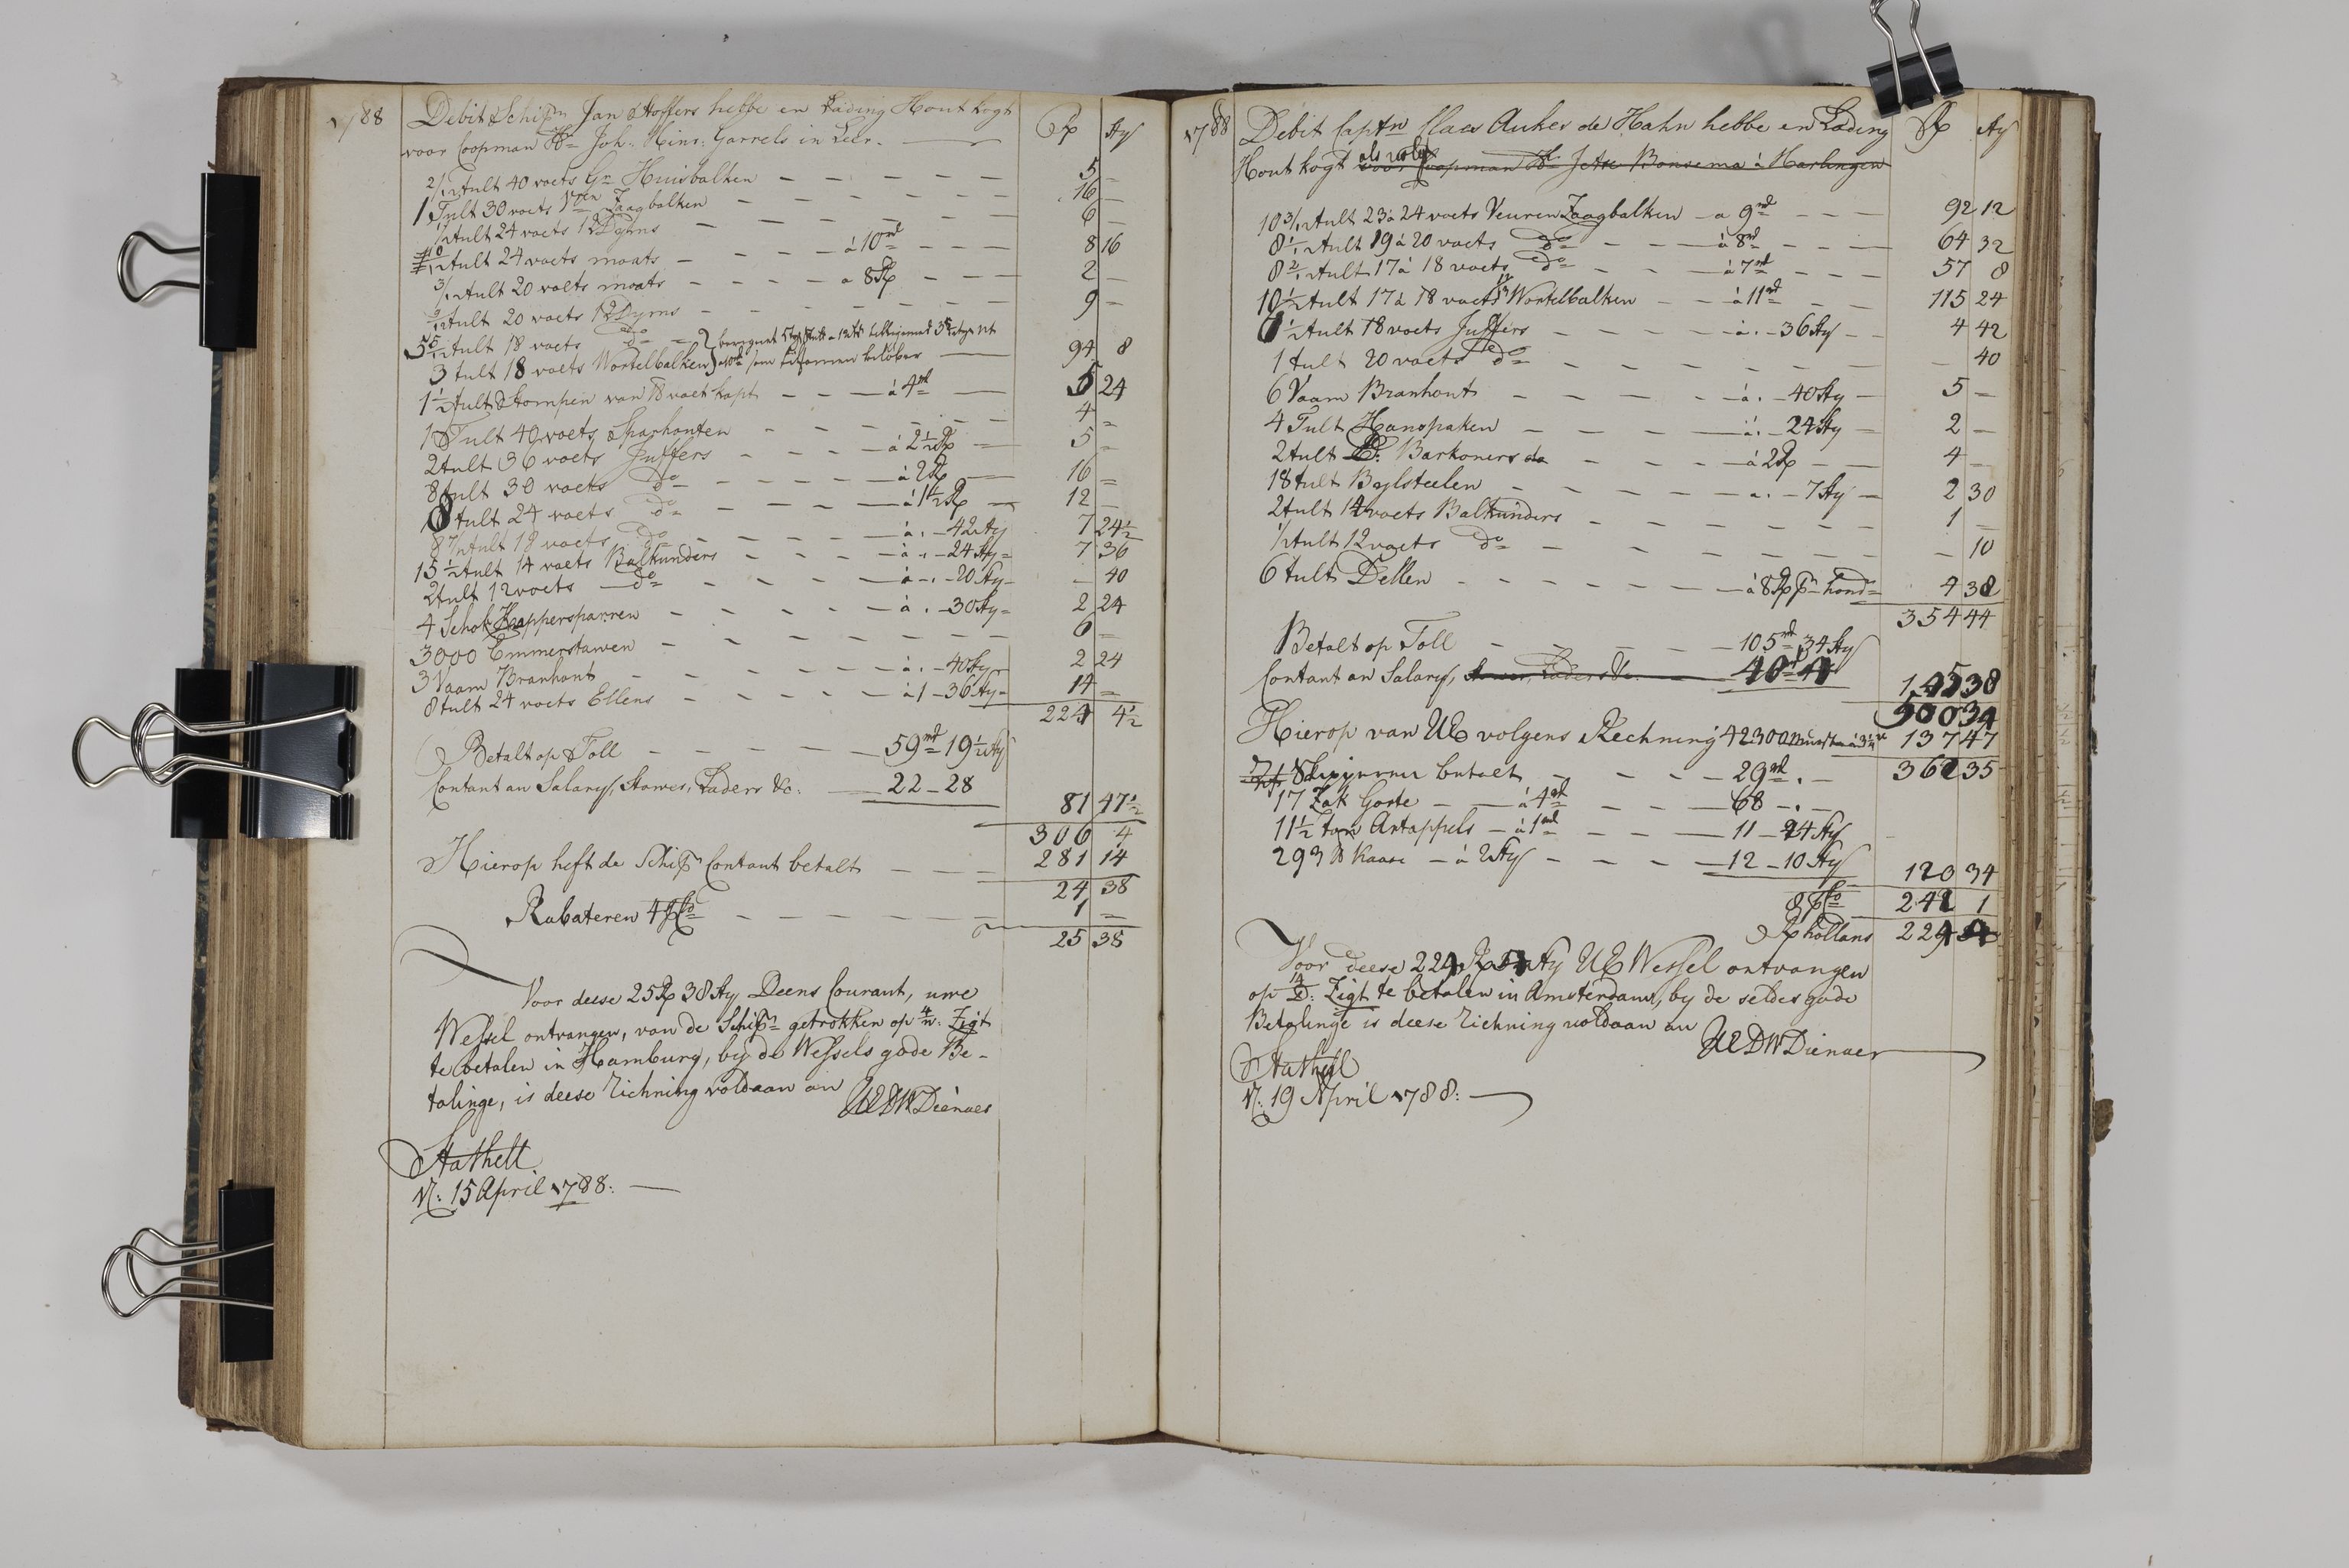 1788 Debit Schipr Jan Stoffers hebbe en Lading Hout kogt Rx Sty
voor Coopman Hr Joh: Hinr: Garrels in Leer.
2/12 tult 40 voets Gr. Huisbalken 5 –
1 Tult 30 voets Zaagbalken 16 –
1/2 tult 24 voets 12 Dyms 6 –
10/12 tult 24 voets moats à 10 rd 8 16
3/12 tult 20 voets moats a 8 Rx 2 –
tult 20 voets 12 Dyms 9 –
tult 18 voets do
3 tult 18 voets Wortelbalken 94 8
1 1/2 tult Stompen van 18 voet kapt à 4 rd 5 24
1 Tult 40 voets Sparhouten 4 –
2 tult 36 voets Juffers à 2 1/2 Rx 5 –
8 tult 30 voets do à 2 Rx 16 –
8 tult 24 voets do à 1 1/2 Rx 12 –
8 7/12 tult 18 voets do à . – 42 Sty 7 24 1/2
15 1/2 tult 14 voets Balkunders à . – 24 Sty 7 36
2 tult 12 voets do à – . – 20 Sty – 40
4 Schok Happersparren à . – 30 Sty 2 24
3000 Emmerstawen 6 –
3 Vaam Branhout à . – 40 Sty 2 24
8 tult 24 voets Ellens à 1 – 36 Sty 14 –
224 4 1/2
Betalt op Toll 59 rd 19 1/2 Sty
Contant an Salary, Stower, Laders &c: 22 – 28
81 47 1/2
306 4
Hierop heft de Schipr Contant betalt 281 14
24 38
Rabateren 4 pCto 1 –
25 38
Voor deese 25 Rx 38 Sty Deens Courant, uwe
Wessel ontvangen, van de Schipr getrokken op 4 w: Zigt
te betalen in Hamburg, bij de Wessels gode Be-
talinge, is deese Richning voldaan an
UEDWDienaer
Stathell
d: 15 April 1788:
1788 Debit Captn Claas Aukes de Hahn hebbe en Lading Rx Sty
Hout kogt als volgt voor Coopman Hr Jetse Bonsema à Harlingen
10 3/12 tult 23 à 24 voets Veuren Zaagbalken a 9 rd 92 12
8 1/12 tult 19 à 20 voets do à 8 rd 64 32
8 2/12 tult 17 à 18 voets do à 7 rd 57 8
10 1/2 tult 17 à 18 voets Wortelbalken à 11 rd 115 24
6 1/2 tult 18 voets Juffers à . – 36 Sty 4 42
1 tult 20 voets do – 40
6 Vaam Branhout à . – 40 Sty 5 –
4 Tult Hanspaken à . – 24 Sty 2 –
2 tult Barkoners do à 2 Rx 4 –
18 tult Bylsteelen a . – 7 Sty 2 30
2 tult 14 voets Balkunders 1 –
1/2 tult 12 voets do – 10
6 tult Dellen à 8 Rx pr hond 4 38
354 44
Betalt op Toll 105 rd 34 Sty
Contant an Salary, 40 rd 4
145 38
500 34
Hierop van UE volgens Rechning 137 47
362 35
betalt 29 rd . –
17 Zak Gorte à 4 rd 68 – . –
11 1/2 ton Artappels à 1 rd 11 – 24 Sty
293 lb Kaase à 2 Sty 12 – 10 Sty
120 34
8 pCto 242 1
Rx hollans 224
Voor deese 224 Rx Sty UE Wessel ontvangen
op 14 D: Zigt te betalen in Amsterdam, by de seldes gode
Betalinge is deese Richning voldaan an
UEDWDienaer
Stathell
d: 19 April 1788: